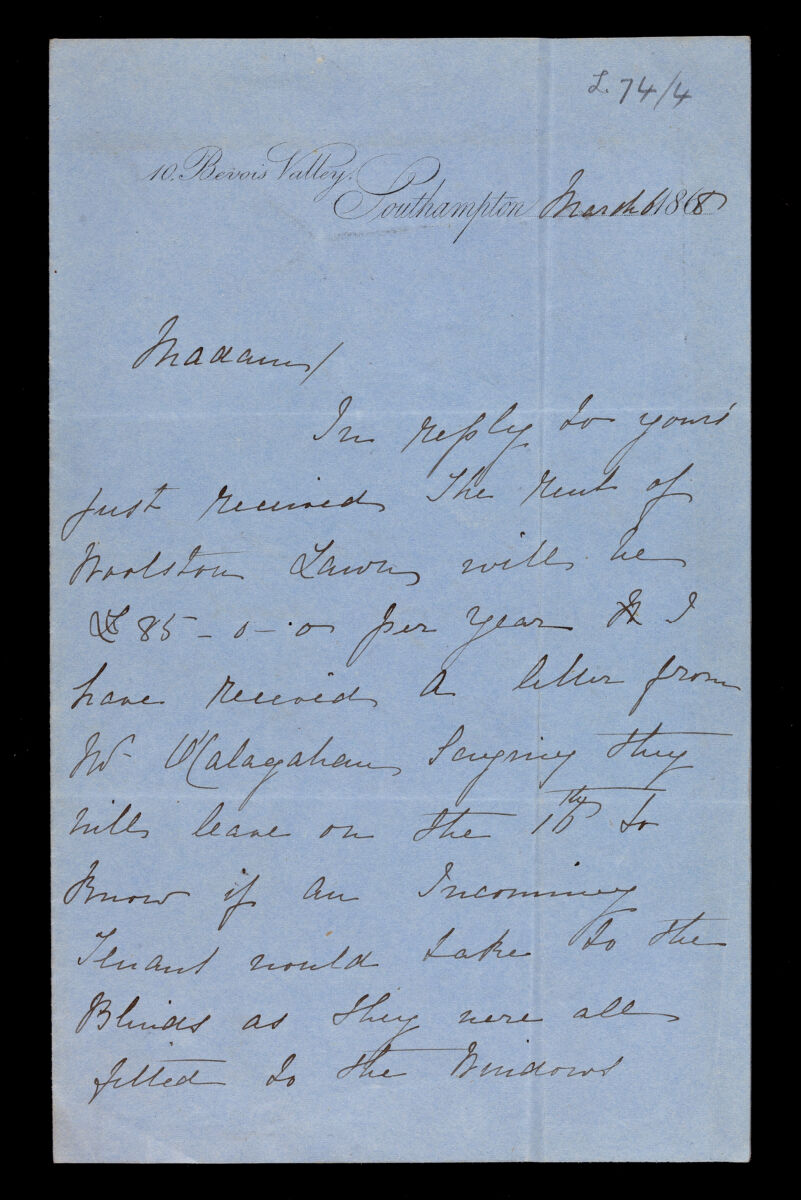 L. 74/4
10, Bevois Valley,
Southampton March 6 1868
Madam/
In reply to yours
just received the rent of
Woolston Lawn will be
£85-0-0 per year I
have received a letter from
Mr O'Calagahan Saying they
will leave on the 16th to
Know if an Incoming
Tenant would take to the
Blinds as they were all
fitted to the Windows